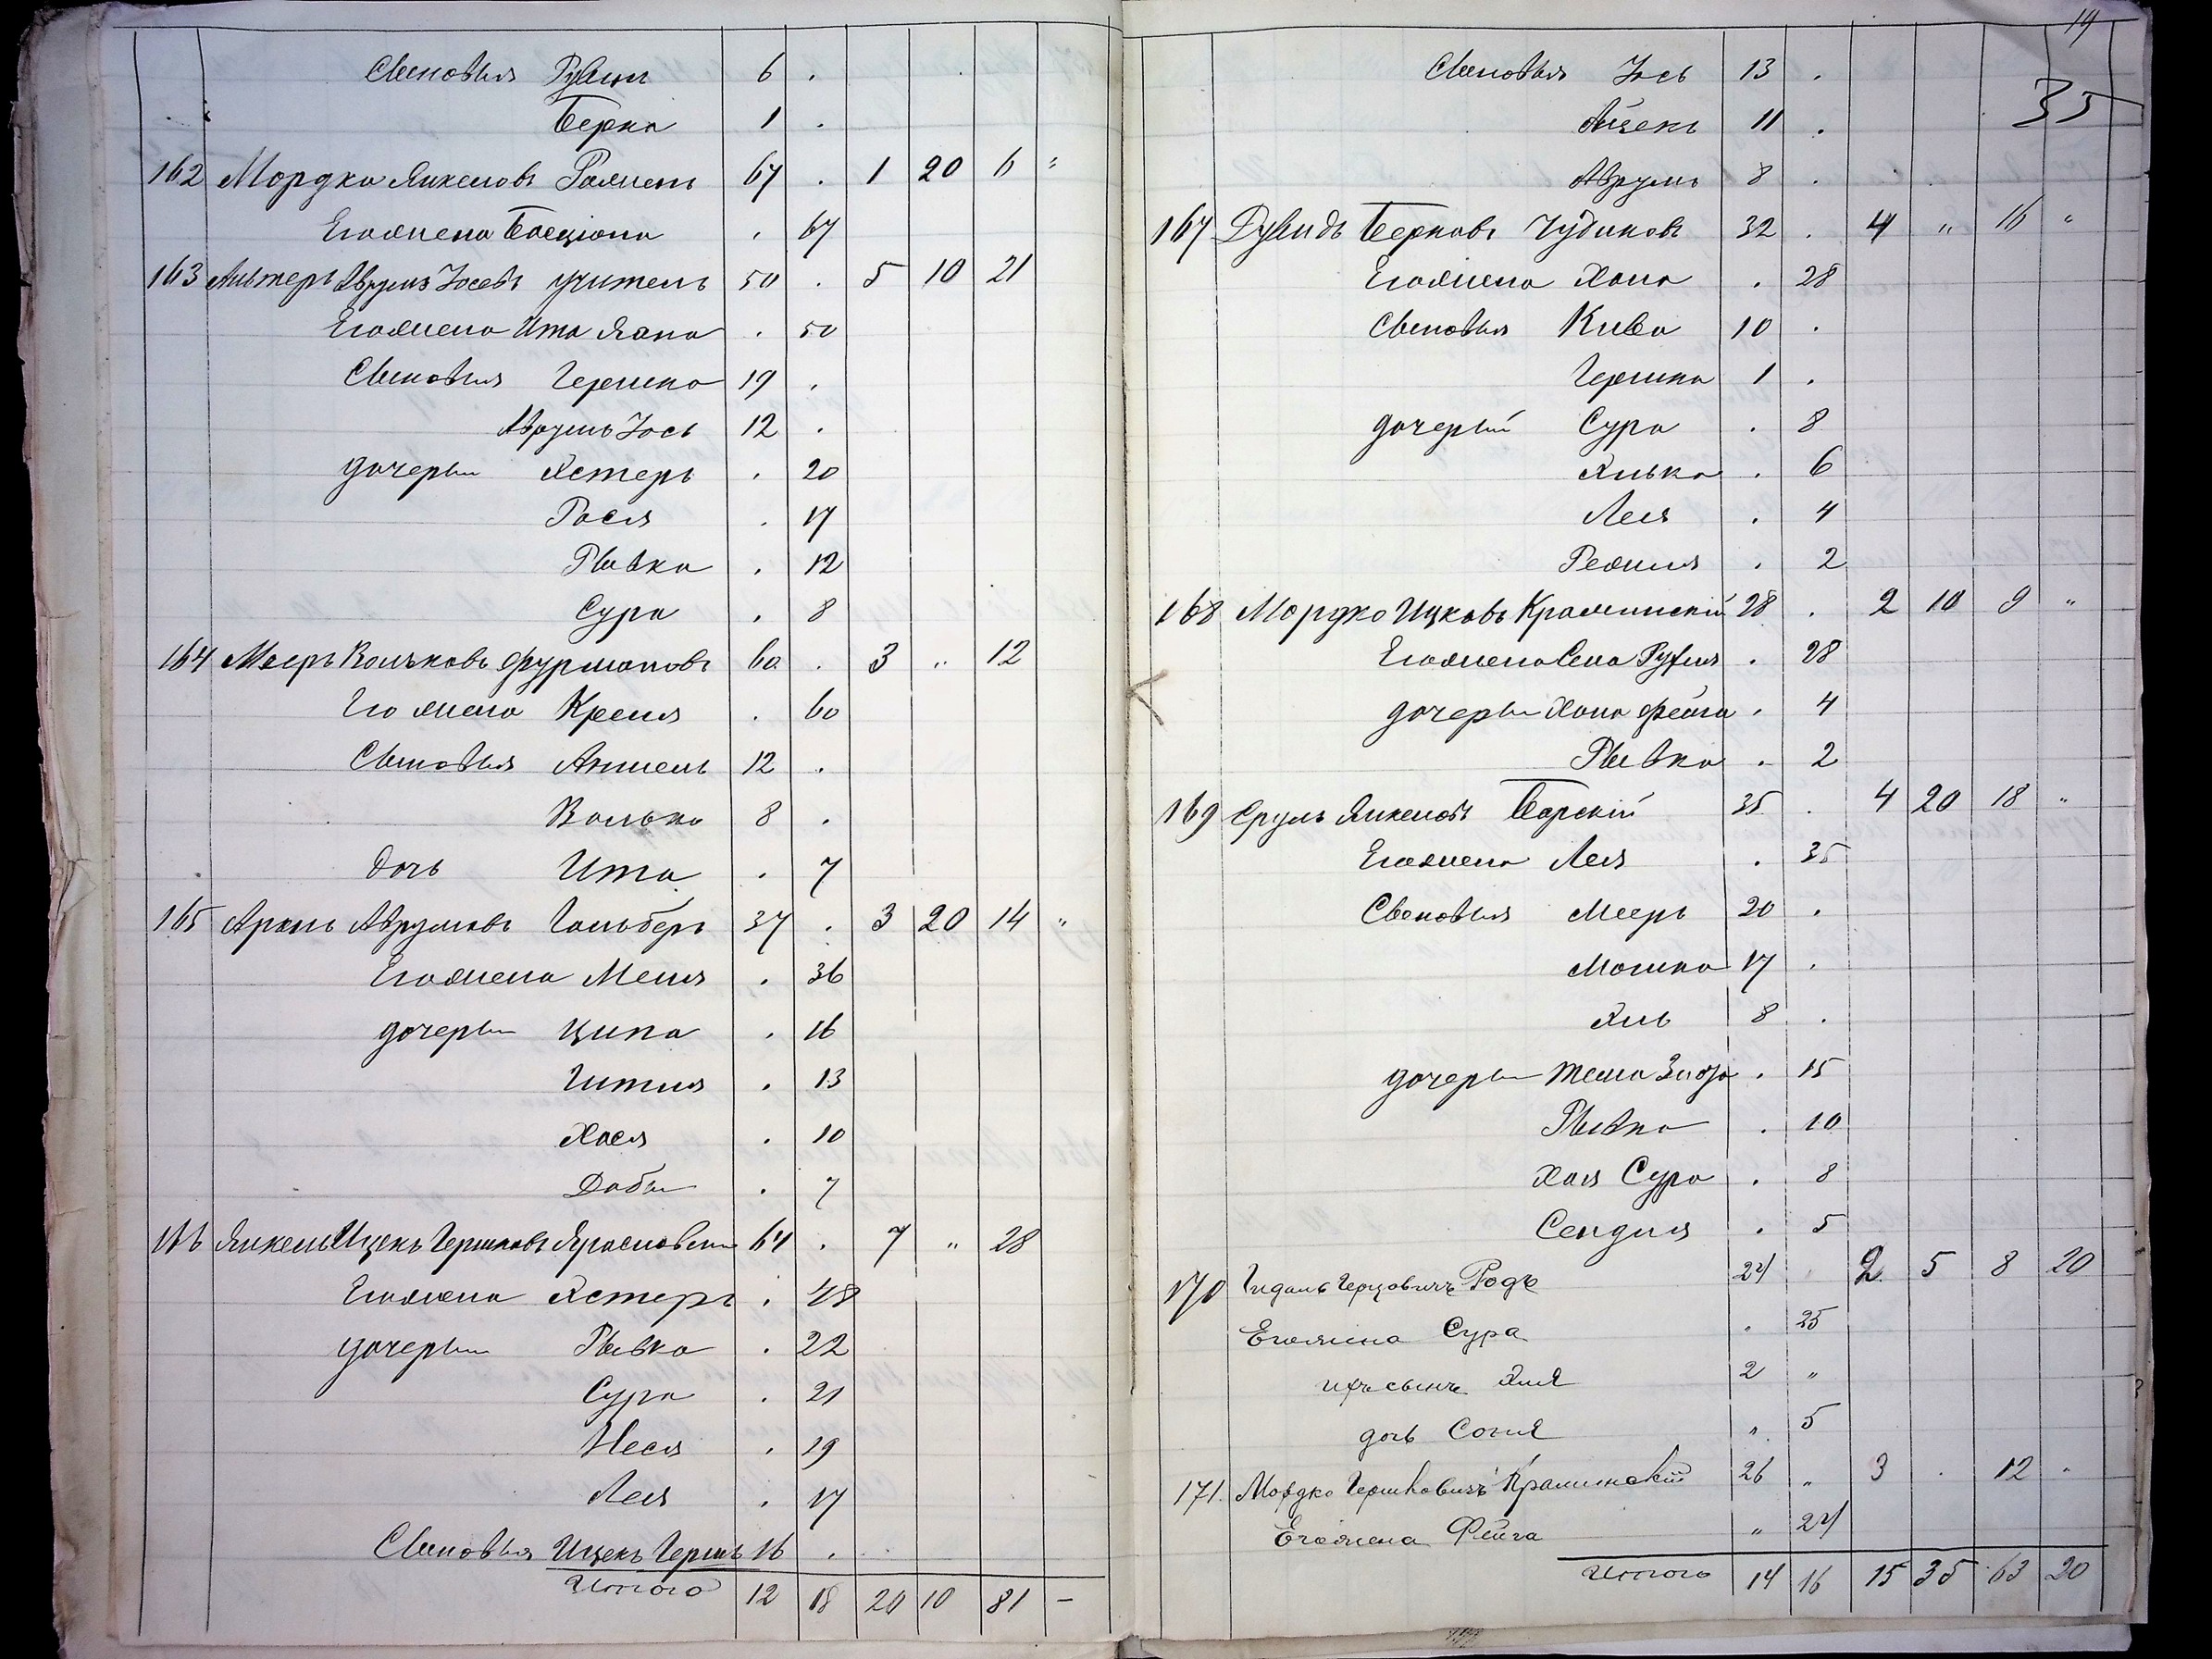 Сыновья Рувин 6 .
Берко 1 .
162 Мордко Янкелов Ройзмен 67 . 1 20 6 "
Его жена Басциона . 67
163 Альтер Аврум Іосев учитель 50 . 5 10 21
Его жена Ита Хана . 50
Сыновья Гершко 19 .
Аврумъ Іось 12 .
дочеры Эстеръ . 20
Рося . 17
Рывка . 12
Сура . 8
164 Меерь Вольковъ Фурмановъ 60 . 3 " 12
Его жена Крейля . 60
Сыновья Аншель 12 .
Волько 8 .
Дочь Ита . 7
165 Аронъ Аврумовъ Гольберъ 37 . 3 20 14 "
Его жена Меня . 36
дочеры Ципа . 16
Гитля . 13
Хася . 10
Добы . 7
166 Янкель Ицекъ Гершковъ Красновскы 64 . 7 " 28
Его жена Эстеръ . 48
дочеры Рывка . 22
Сура . 21
Неся . 19
Лея . 17
Сыновья Ицекъ Гершъ 16 .
Итого 12 18 20 10 81 —
14
35
Сыновья Іось 13 .
Айзекъ 11 .
Аврумъ 8 .
167 Дувидъ Берковъ Чудиковъ 32 . 4 " 16 "
Его жена Хана . 28
Сыновья Кива 10 .
Гершко 1 .
дочерый Сура . 8
Элька . 6
Лея . 4
Рейзля . 2
168 Мордко Ицковъ Краминскій 28 . 2 10 9 "
Его жена Сена Рухля . 28
дочеры Хана Фейга . 4
Рывка . 2
169 Сруль Янкелевъ Барскій 35 . 4 20 18 "
Его жена Лея . 35
Сыновья Меерь 20 .
Мошко 17 .
Эль 8 .
дочеры Тема Злота . 15
Рывка . 10
Хая Сура . 8
Сендля . 5
170 Гидаль Герцовичъ Родъ 27 . 2 5 8 20
Его жена Сура . 25
ихъ сынъ Эля 2 "
дочь Соня " 5
171. Мордко Гершковичъ Краминскій 26 " 3 . 12 "
Его жена Фейга " 24
Итого 14 16 15 35 63 20